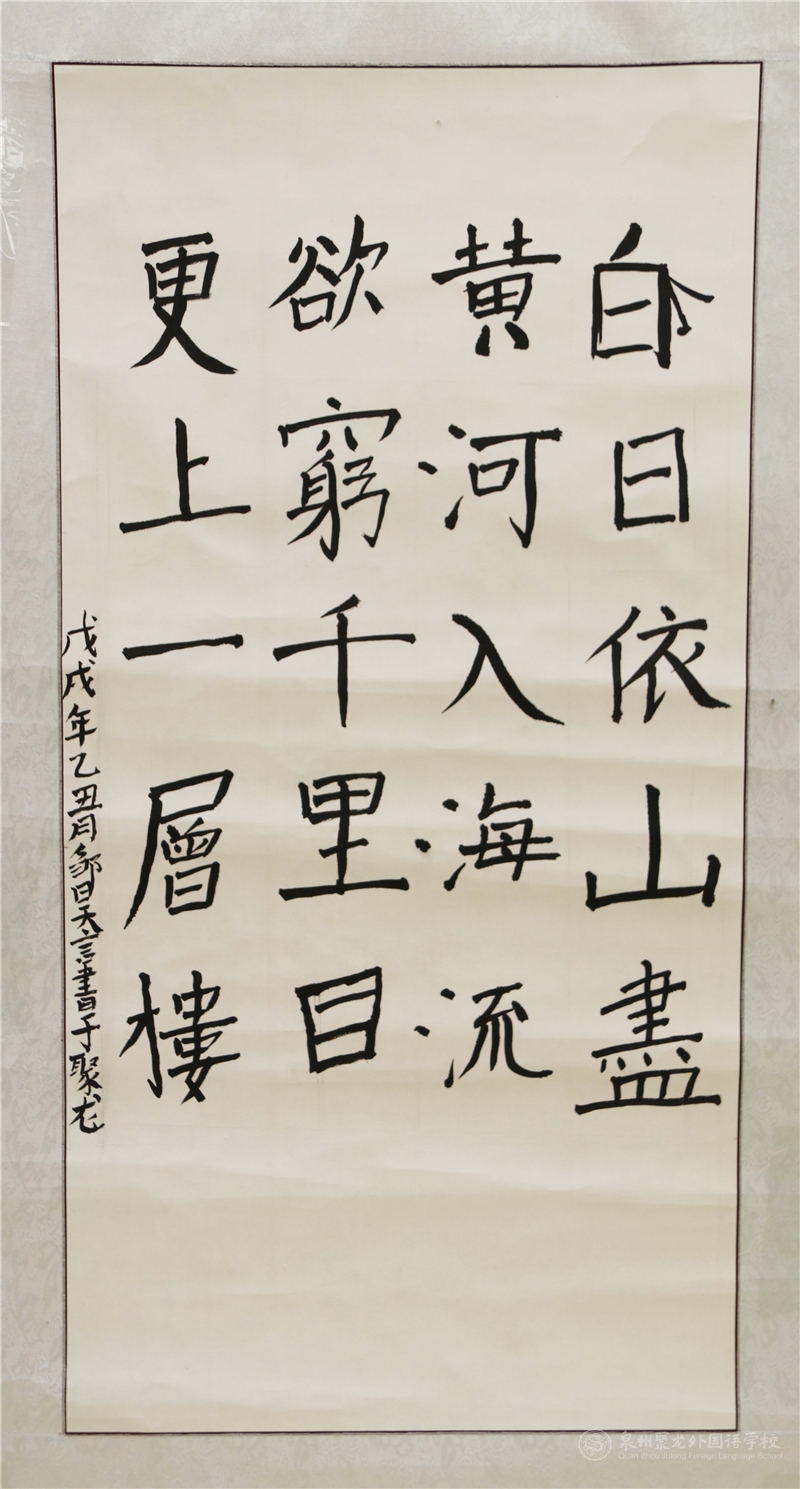 白日依山盡
黃河入海流
欲窮千里目
更上一層樓
戊戌年乙丑月鄒日天言書于聚龙
泉州聚龙外国语学校
Quan Zhou Julong Foreign Language School